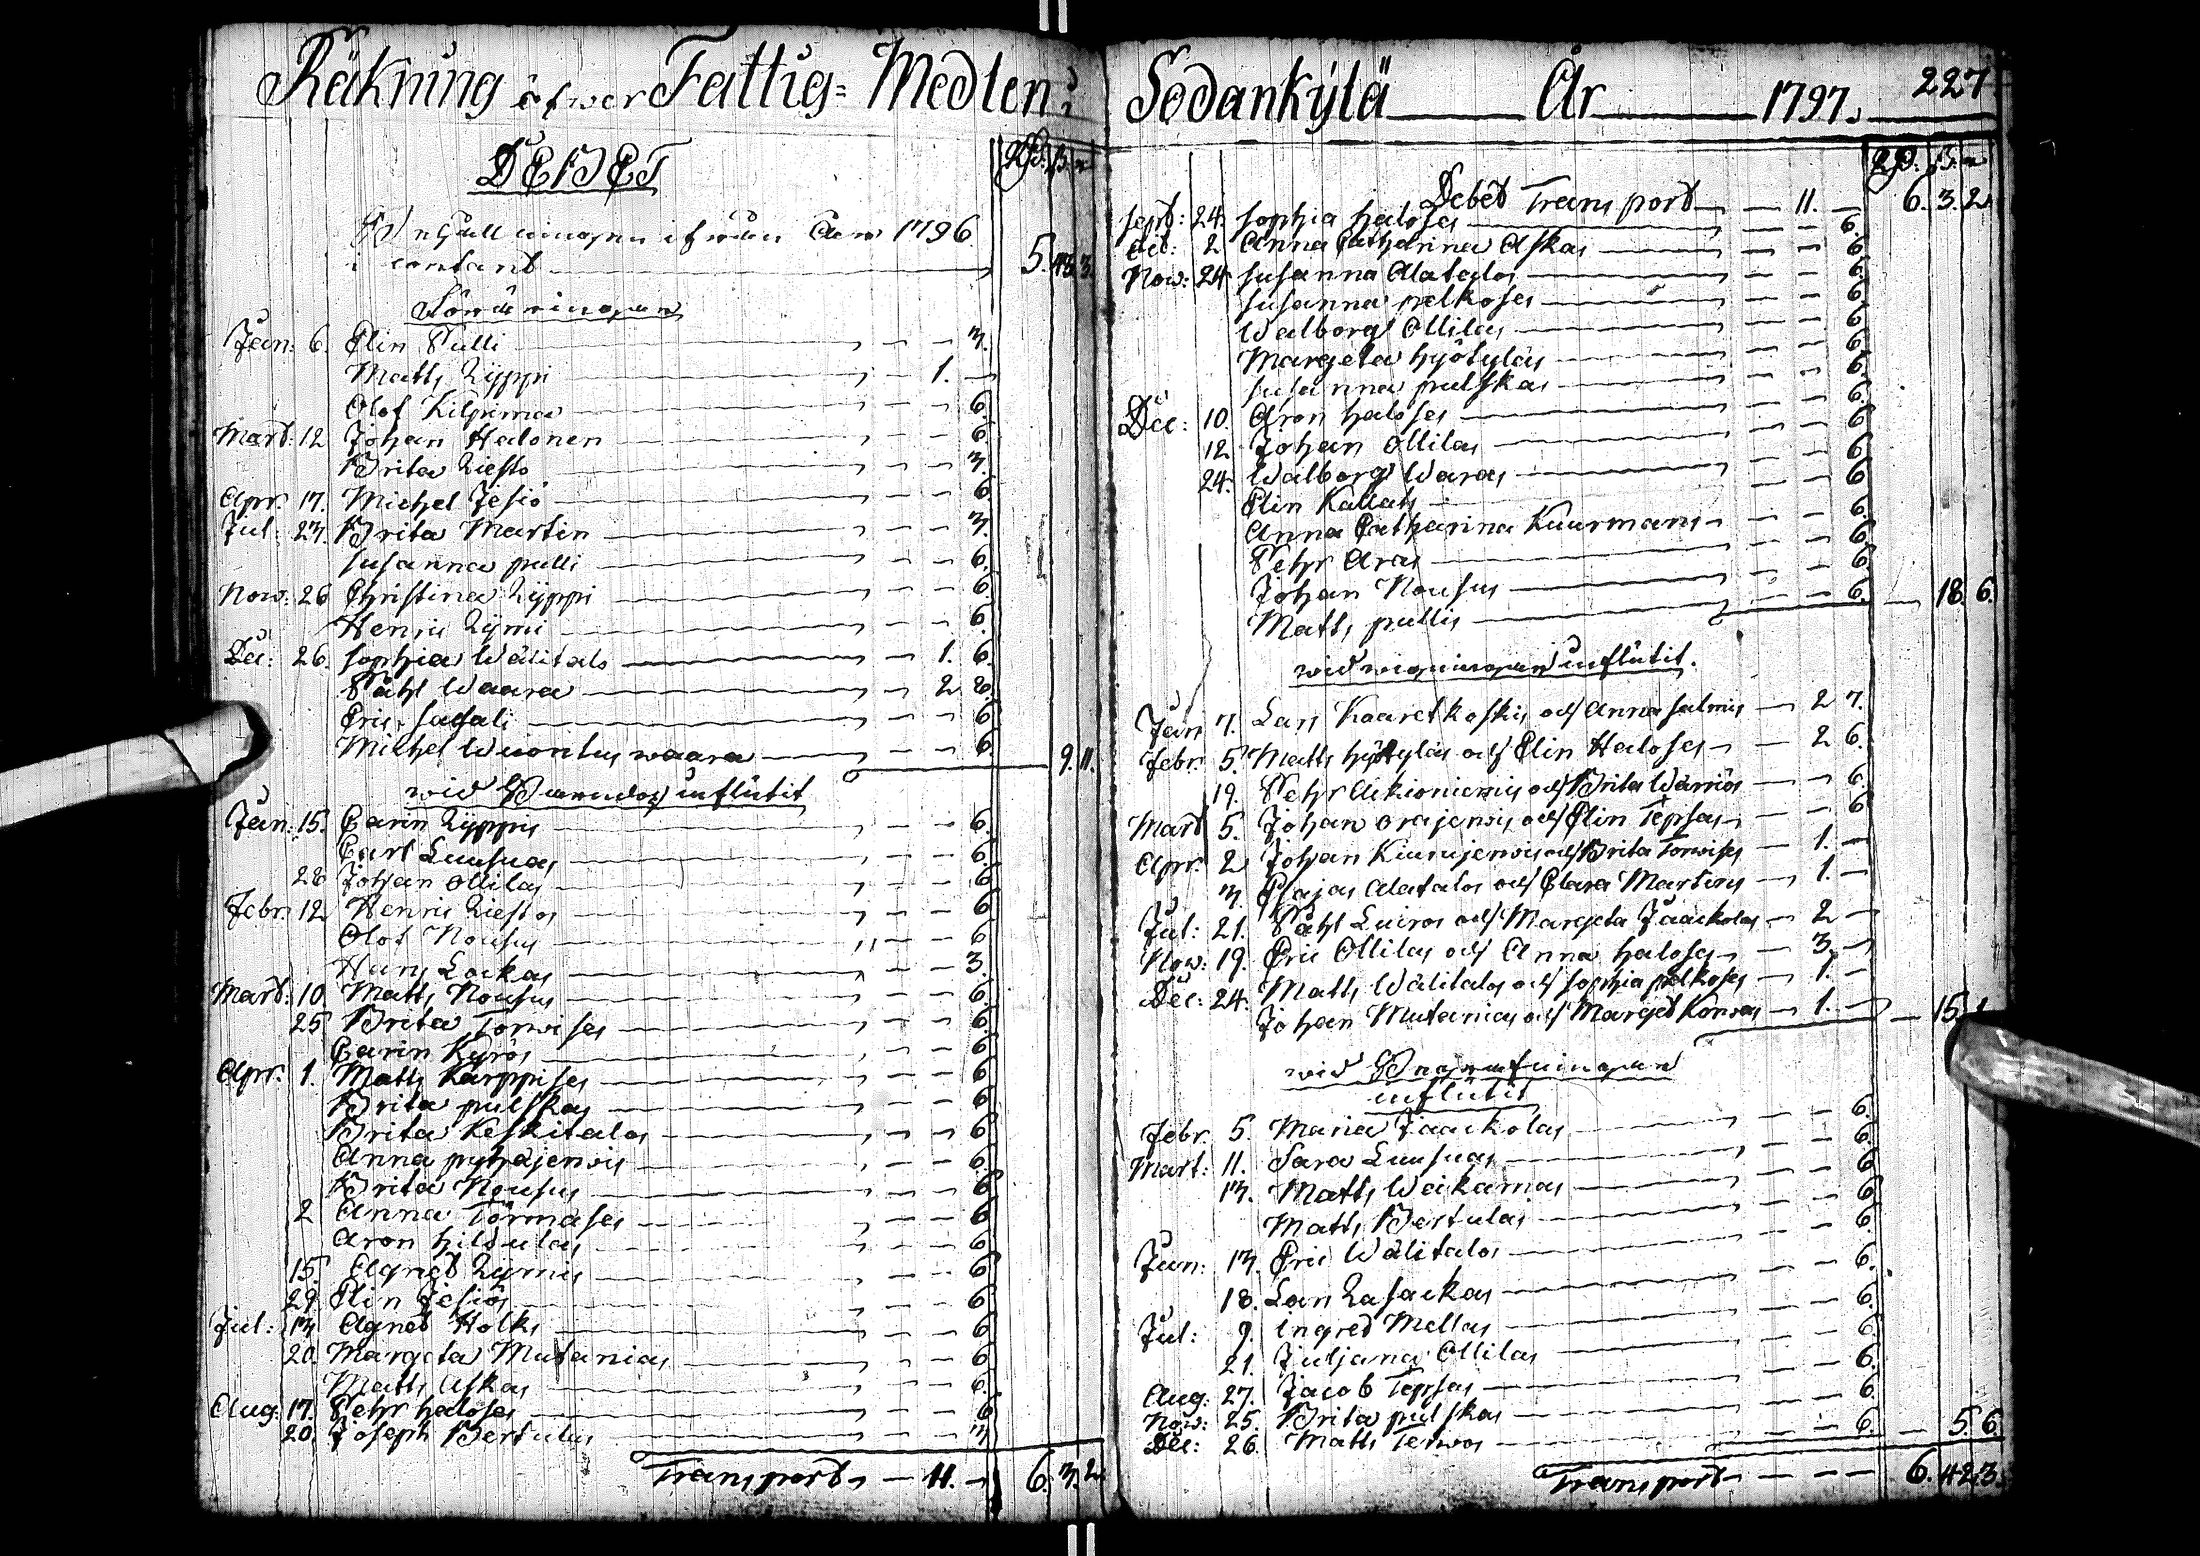 Räkning öfwer Fattig= Medlen i
DEBET
Rd. ß. r
Behållningen ifrån åre 1796
i contant — 5. 43. 3.
Föräringar
Jan: 6. Elin Pulli — 3.
Matts Kyppi — 1. —
Olof Kilpima — 6.
Mart: 12 Johan Halonen — 6.
Brita Riesto — 3.
Apr. 17. Michel Jesiö — 6.
Jul: 23. Brita Martin — 3.
Susanna pulli — 6.
Now: 26 Christina Kyppi — 6.
Henric Kymi — 6.
Dec: 26. Sophia Wälitalo — 1. 6.
Påhl Waara — 2 8.
Eric Sasali — 6
Michel Wuontuswaara — 6. 9. 11.
wid Barndop influtit
Jan: 15. Carin Kyppis — 6.
Carl Luusuas — 6.
28 Johan Ollilas — 6
Febr: 12 Henric Riestos — 6
Olof Nousus — 6
Hans Lockas — 3.
Mart: 10. Matts Nousus — 6.
25 Brita Torwises — 6.
Carin Kyrös — 6
Apr: 1. Matts Karppises — 6
Brita pulskas — 6
Brita Keskitalos — 6
Anna pyhäjerwis — 6.
Brita Nousus — 6
2 Anna Törmäses — 6
Aron hildulas — 6
15. Agnet Kymis — 6
29. Elin Jesiös — 6
Jul: 13 Agnet Holks — 6
20. Margeta Mutanias — 6
Matts Askas — 6.
Aug: 17. Pehr haloses — 6
20. Joseph Bertulas — 3
Transport — 11. — 6. 3. 2
Sodankylä — År — 1797.
227
Rd. ß. r
Debet Transport — 11. — 6. 3. 2
Sept: 24. Sophia haloses — 6.
Oct: 2 Anna Catharina Askas — 6
Now: 24 Susanna Alatalos — 6.
Susanna pelkoses — 6.
Walborg Ollilas — 6
Margeta hyötyläs — 6.
Susanna pulskas — 6.
Dec: 10. Aron haloses — 6.
12 Johan Ollilas — 6
24. Walborg Waras — 6
Elin Kallats — 6
Anna Catharina Kuurmans — 6.
Pehr Aras — 6.
Johan Nousus — 6.
Matts pullis — 6. — 18. 6.
wid wigningar influtit.
Jan 7. Lars Kaaretkoskis och Anna Salmis — 2 7.
Febr. 5. Matts hyötyläs och Elin Haloses — 2 6.
19. Pehr Aikioniemis och Brita Warriös — 6.
Mart 5. Johan orajerwis och Elin Tepsas — 6
Apr. 2 Johan Kiurujerwis och Brita Torwises — 1. —
3. Esajas Alatalos och Clara Martins — 1. —
Jul: 21. Påhl Luiros och Margeta Jaackolas — 2 —
Now: 19. Eric Ollilas och Anna haloses — 3. —
Dec: 24. Matts Wälitalos och Sophia pelkoses — 1. —
Johan Mutanias och Marget Korwas — 1. — 15. 1
wid Begrafningar
influtit
Febr. 5. Maria Jaackolas — 6.
Mart: 11. Sara Luusuas — 6.
13. Matts Waikamas — 6
Matts Bertulas — 6
Jun: 13. Eric Wälitalos — 6.
18. Lars Rasackas — 6.
Jul: 9. Ingred Mellas — 6.
21. Juljana Ollilas — 6.
Aug: 27. Jacob Tepsas — 6.
Now: 25. Brita pulskas — 6.
Dec: 26. Matts Terwos — 6. — 5. 6.
Transport — 6. 42. 3.